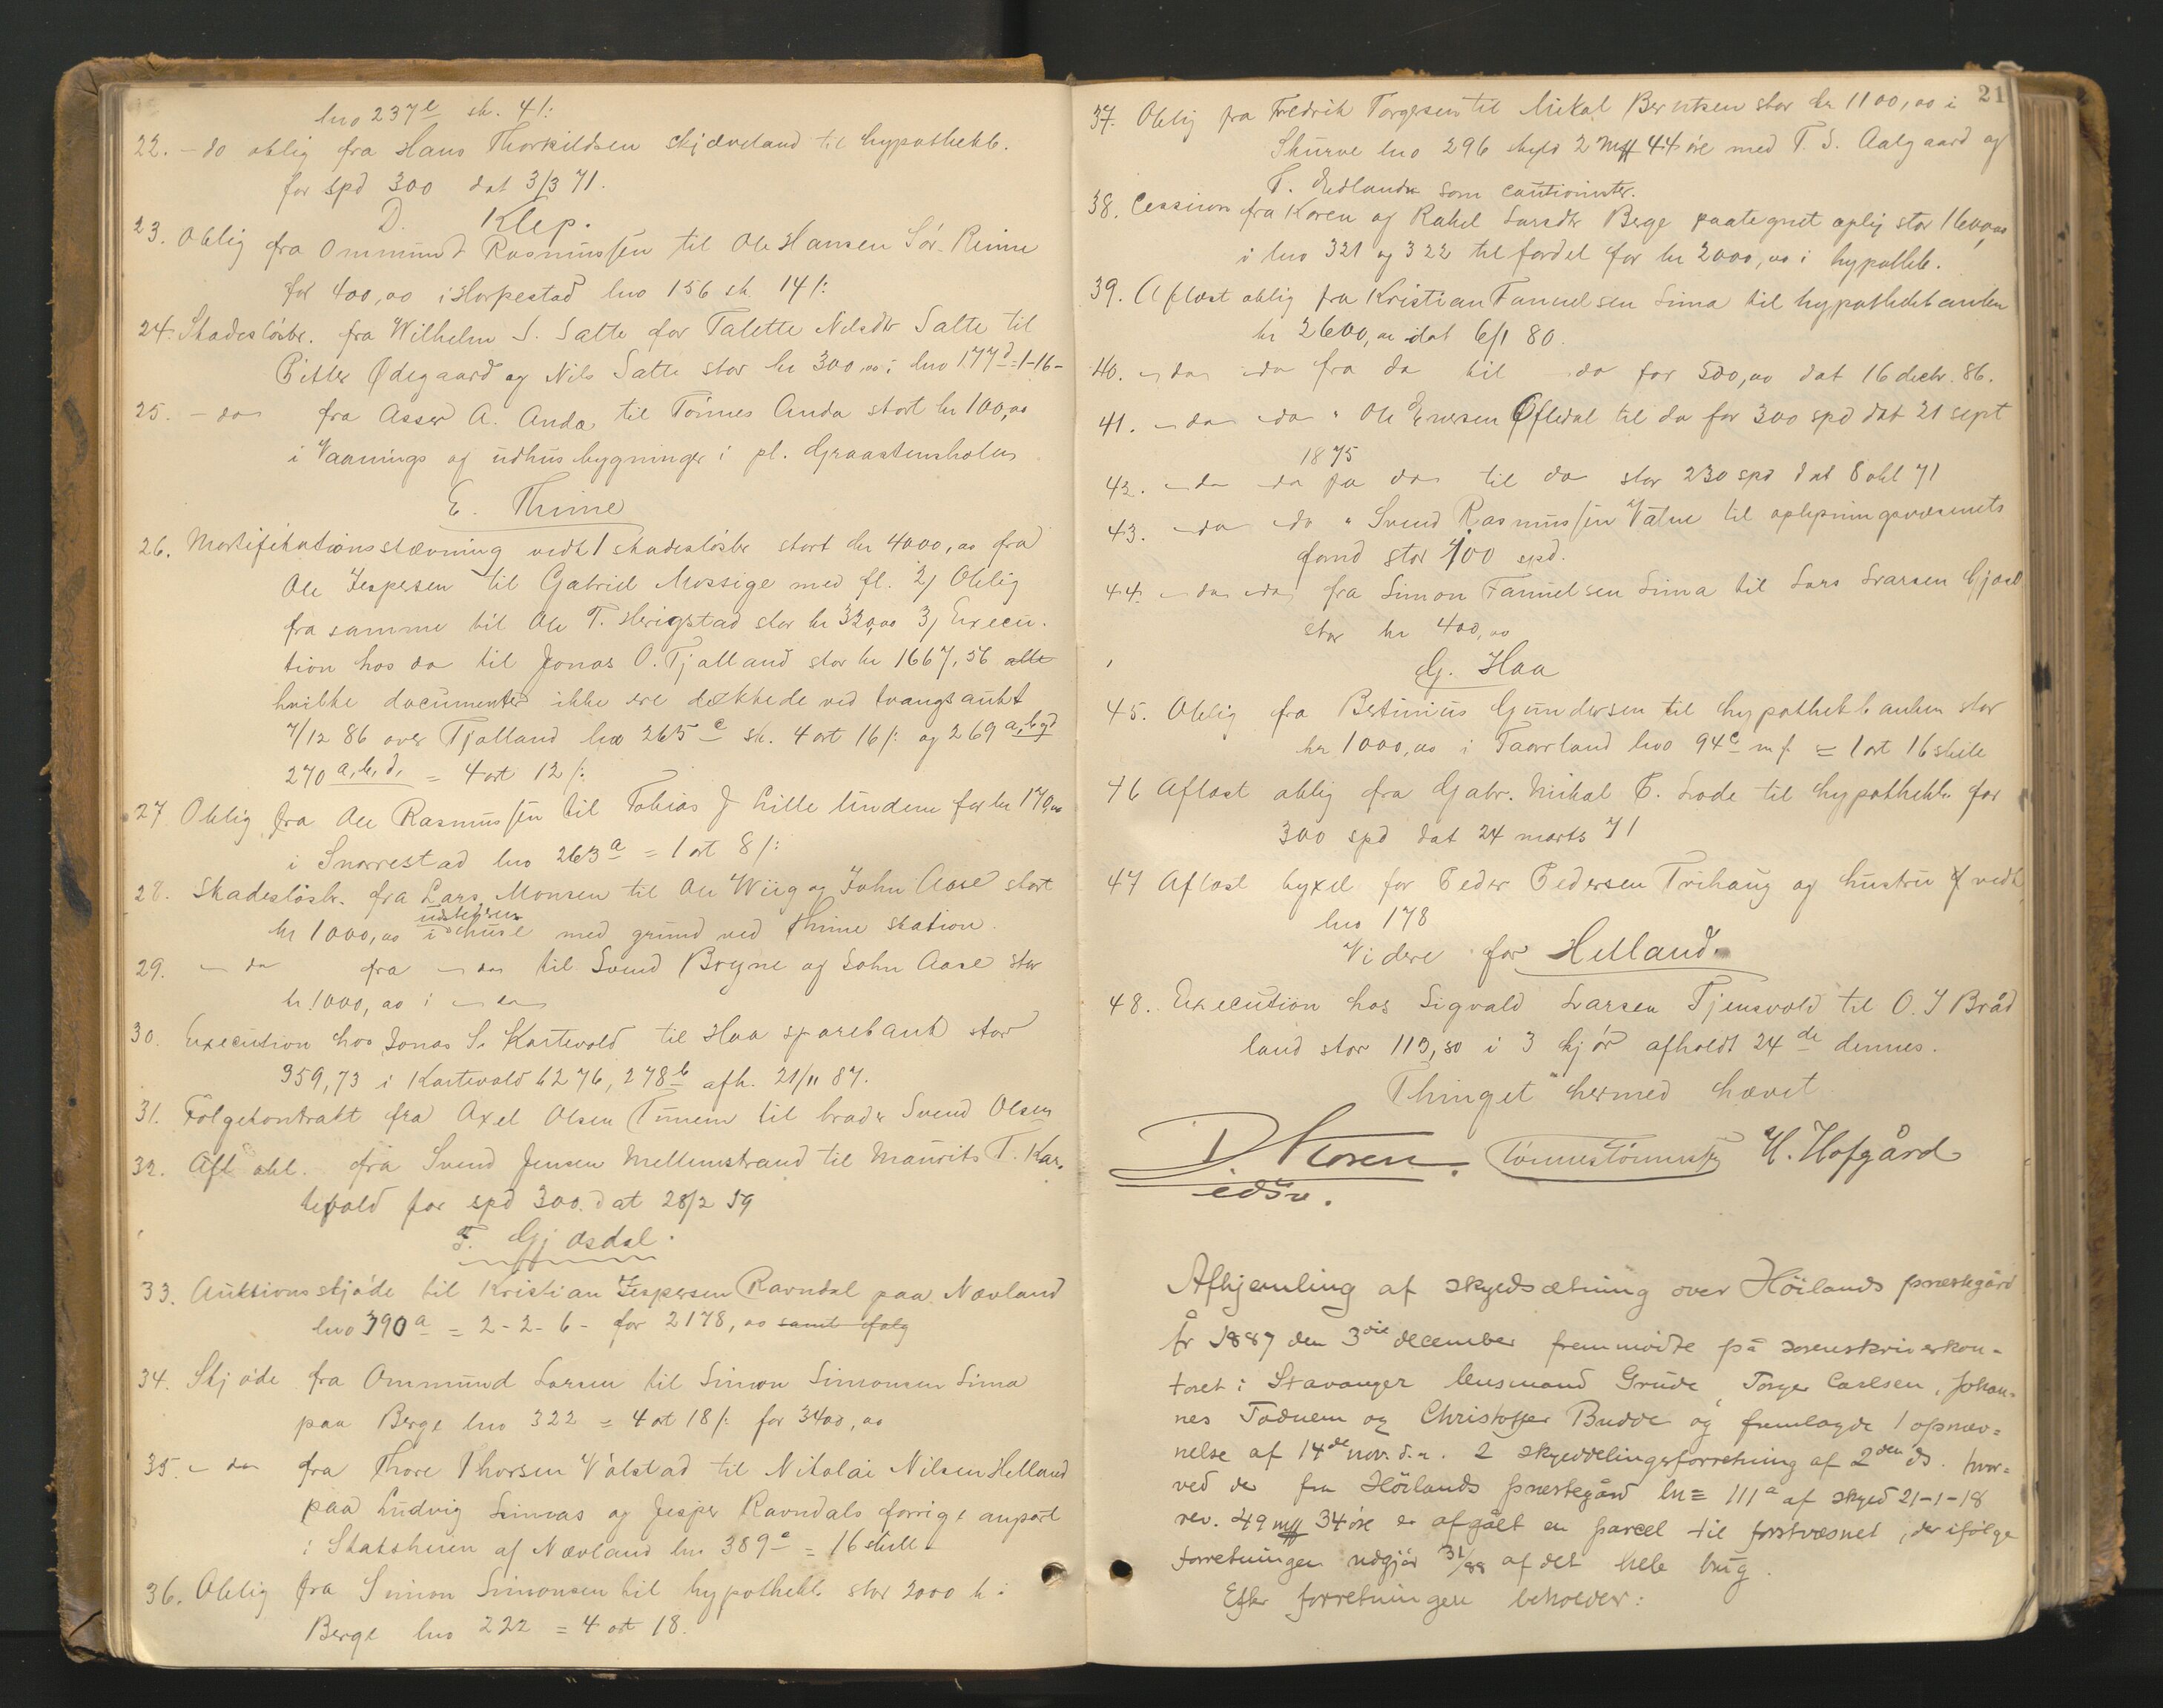 lno 237e sk. 4/:
22. - do oblig fra Hans Thorkildsen Skjæveland til hypothekb.
for spd 300 dat 3/3 71.
D. Klep.
23. Oblig fra Ommund Rasmussen til Ole Hansen Sör-Reime
for 400,00 i Horpestad lno 156 sk. 14/:
24. Skadeslösbr. fra Wilhelm S. Salte for Talette Nilsdtr Salte til
Peder Ødegaard og Nils Salte stor kr 300,00 i lno 177d = 1-16-
25. - do fra Asser A. Anda til Tönnes Anda stort kr 100,00
i Vaanings og udhusbygninger i pl. Graastensholen
E. Thime
26. Mortifikationsstævning vedk 1 skadeslösbr stort kr 4000,00 fra
Ole Jespersen til Gabriel Mossige med fl. 2, Oblig
fra samme til Ole T. Herigstad stor kr 320,00 3, Execu-
tion hos do til Jonas O. Tjalland stor kr 1667,56 alle
hvilke documenter ikke ere dækkede ved tvangsaukt
7/12 86 over Tjalland lno 265c sk. 4 ort 16/: og 269 a,b,g,d
270 a,b,d, = 4 ort 12/:
27 Oblig fra Ole Rasmussen til Tobias J Lille Undem for kr 170,00
i Snorrestad lno 263a = 1 ort 8/:
28. Skadeslösbr. fra Lars Monsen til Ole Wiig og John Aase stort
kr 1000,00 i udstederens huse med grund ved Thime station.
29. - do fra - do til Svend Bryne og John Aase stor
kr 1000,00 i - do
30. Execution hos Jonas S. Kartevold til Haa sparebank stor
359,73 i Kartevold b 276, 278b afh. 21/11 87.
31. Fölgekontrakt fra Axel Olsen Tunem til broder Svend Olsen
32. Afl obl. fra Svend Jensen Mellemstrand til Maurits T. Kar-
tevold for spd 300. dat 28/2 59
F. Gjæsdal.
33. Auktionsskjöde til Kristian Jespersen Ravndal paa Nævland
lno 390a = 2-2-6- for 2178,00 samt følg
34. Skjøde fra Ommund Larsen til Simon Simonsen Lima
paa Berge lno 322 = 4 ort 18/: for 3400,00
35. - do fra Thore Thorsen Válstad til Nikolai Nilsen Helland
paa Ludvig Limas og Jesper Ravndals forrige anpart
i Statshuen af Nævland lno 389e = 16 skill
36. Oblig fra Simon Simonsen til hypothekb. stor 2000 k i
Berge lno 222 = 4 ort 18.
21
37. Oblig fra Fredrik Torgersen til Mikal Berntsen stor kr 1100,00 i
Skurve lno 296 skyld 2 Mk 44 öre med T. S. Aalgaard og
T. Edland som cautionister.
38. Cession fra Karen og Rakel Larsdtr Berge paategnet oplig stor 1600,00
i lno 321 og 322 til fordel for kr 2000,00 i hypothekb.
39. Aflæst oblig fra Kristian Fanuelsen Lima til hypothekbanken
kr 2600,00 dat 6/1 80.
40. - do - do fra do til do for 500,00 dat 16 decbr. 86.
41. - do - do " Ole Enersen Øfledal til do for 300 spd dat 21 sept
1875
42. - do - do fra do til do stor 230 spd dat 8 okt 71
43. - do - do " Svend Rasmussen Vatne til oplysningsvæsenets
fond stor 100 spd.
44. - do - do fra Simon Fanuelsen Lima til Lars Larsen Gjøsd
stor kr 400,00
G. Haa
45. Oblig fra Bertinius Gundersen til hypothekbanken stor
kr 1000,00 i Taarland lno 94c m f. = 1 ort 16 skill
46 Aflæst oblig fra Gabr. Mikal P. Lode til hypothekb. for
300 spd dat 24 marts 71
47 Aflæst byxel for Peder Pedersen Trihaug og hustru vedk
lno 178
Videre for Helland.
48. Execution hos Sigvald Larsen Tjensvold til O. J Bråd
land stor 119,80 i 3 kjör afholdt 24de dennes.
Thinget hermed hævet
D. Koren. Tönnes Tönnessen H. Hofgård
edsv.
Afhjemling af skyldsætning over Höilands præstegård
År 1887 den 3die december fremmödte på sorenskriverkon-
toret i Stavanger lensmand Grude, Torger Carlsen, Johan-
nes Todnem og Christoffer Budde og fremlagde 1 opnæv-
nelse af 14de nov. d.a. 2 skylddelingsforretning af 2den ds. hvor-
ved der fra Höilands præstegård ln= 111a af skyld 21-1-18
rev. 49 mk 34 öre er afgået en parcel til forstvæsnet, der ifölge
forretningen udgjör 31/88 af det hele brug.
Efter forretningen beholder: